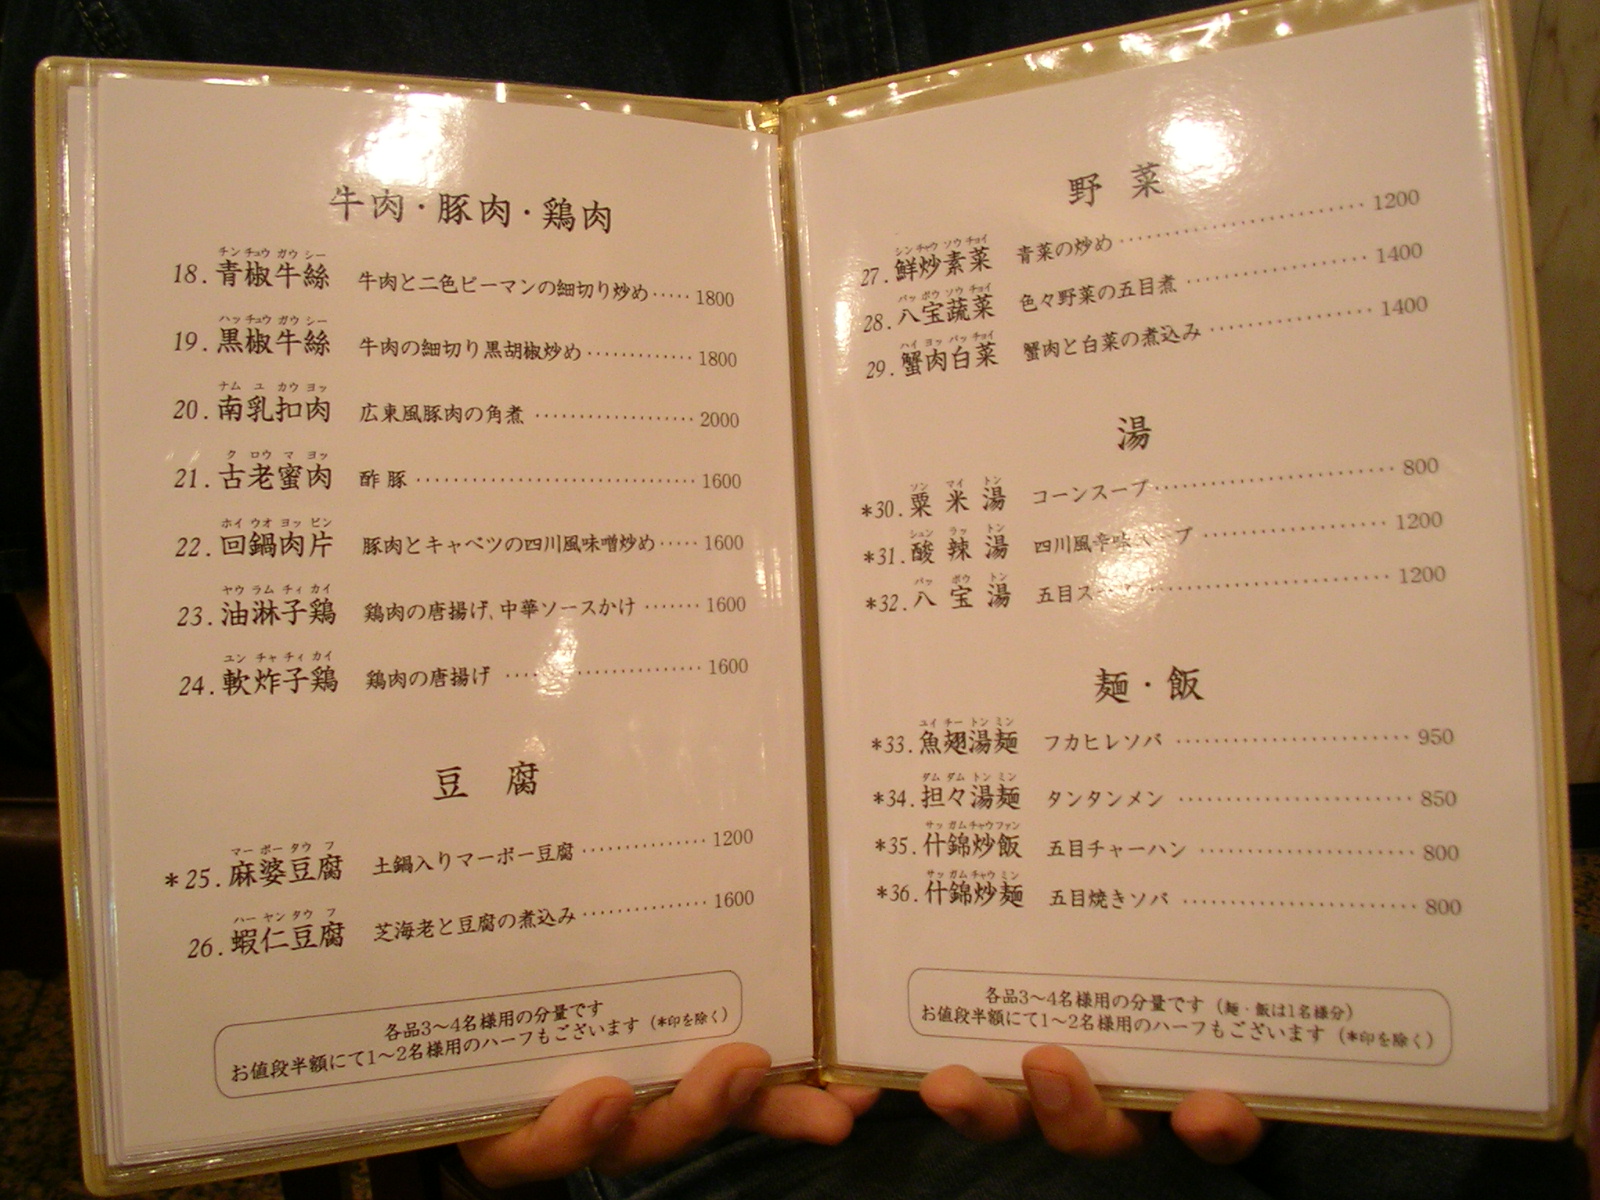 牛肉・豚肉・鶏肉
チンチュウ ガウ シー
18. 青椒牛絲 牛肉と二色ピーマンの細切り炒め・・・・・1800
ハッチュウ ガウ シー
19. 黒椒牛絲 牛肉の細切り黒胡椒炒め・・・・・・・・・・・・・1800
ナム ユ カウ ヨッ
20. 南乳扣肉 広東風豚肉の角煮 ・・・・・・・・・・・・・・・・・・・2000
ク ロウ マ ヨッ
21. 古老蜜肉 酢豚・・・・・・・・・・・・・・・・・・・・・・・・・・・・・・・・・1600
ホイ ウオ ヨッ ピン
22. 回鍋肉片 豚肉とキャベツの四川風味噌炒め・・・・・1600
ヤウ ラム チィ カイ
23. 油淋子鶏 鶏肉の唐揚げ、中華ソースかけ ・・・・・・・1600
ユン チャ チィ カイ
24. 軟炸子鶏 鶏肉の唐揚げ ・・・・・・・・・・・・・・・・・・・・・・・1600
豆 腐
マー ボー タウ フ
*25. 麻婆豆腐 土鍋入りマーボー豆腐・・・・・・・・・・・・・・・1200
ハー ヤン タウ フ
26. 蝦仁豆腐 芝海老と豆腐の煮込み・・・・・・・・・・・・・・・1600
各品3〜4名様用の分量です
お値段半額にて1〜2名様用のハーフもございます (*印を除く)
野 菜
シン チャウ ソウ チョイ
27. 鮮炒素菜 青菜の炒め・・・・・・・・・・・・・・・・・・・・・・・・・・・・・1200
パッ ボウ ソウ チョイ
28. 八宝蔬菜 色々野菜の五目煮 ・・・・・・・・・・・・・・・・・・・・・1400
ハイ ヨッ パッ チョイ
29. 蟹肉白菜 蟹肉と白菜の煮込み・・・・・・・・・・・・・・・・・・・1400
湯
ソン マイ トン
*30. 粟米湯 コーンスープ・・・・・・・・・・・・・・・・・・・・・・・・・・・800
シュン ラッ トン
*31. 酸辣湯 四川風辛味スープ ・・・・・・・・・・・・・・・・・・・・・1200
パッ ボウ トン
*32. 八宝湯 五目スープ・・・・・・・・・・・・・・・・・・・・・・・・・・・1200
麺・飯
ユイ チー トン ミン
*33. 魚翅湯麺 フカヒレソバ ・・・・・・・・・・・・・・・・・・・・・・・・・・・950
ダム ダム トン ミン
*34. 担々湯麺 タンタンメン ・・・・・・・・・・・・・・・・・・・・・・・・・・・850
サッ ガム チャウ ファン
*35. 什錦炒飯 五目チャーハン ・・・・・・・・・・・・・・・・・・・・・・・・800
サッ ガム チャウ ミン
*36. 什錦炒麺 五目焼きソバ ・・・・・・・・・・・・・・・・・・・・・・・・・・・800
各品3〜4名様用の分量です (麺・飯は1名様分)
お値段半額にて1〜2名様用のハーフもございます (*印を除く)